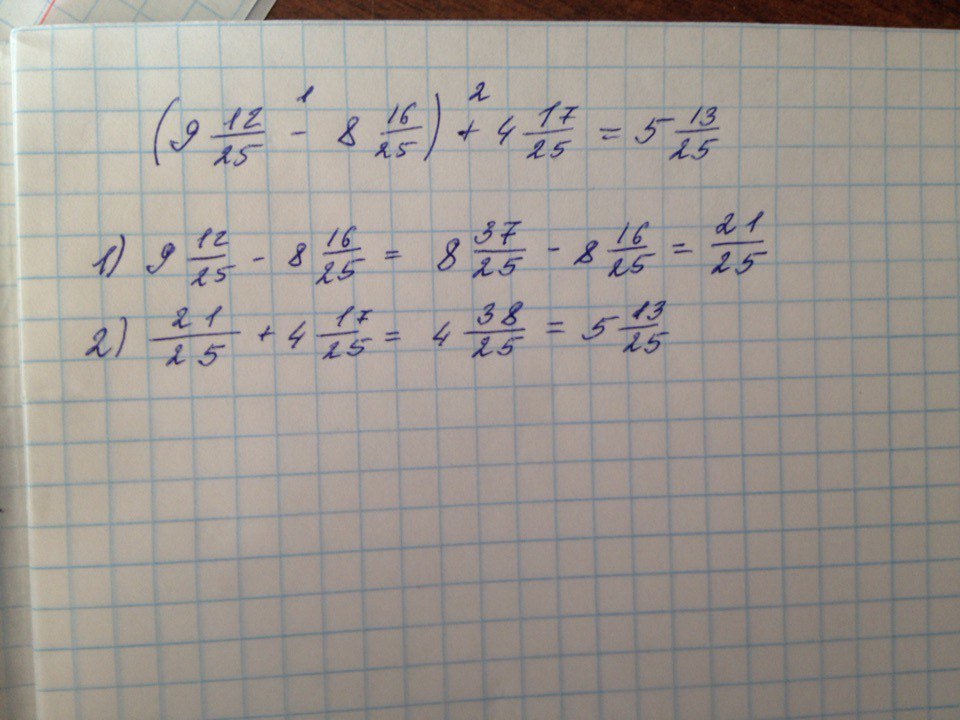 (9 12/25 - 8 16/25) + 4 17/25 = 5 13/25
1) 9 12/25 - 8 16/25 = 8 37/25 - 8 16/25 = 21/25
2) 21/25 + 4 17/25 = 4 38/25 = 5 13/25